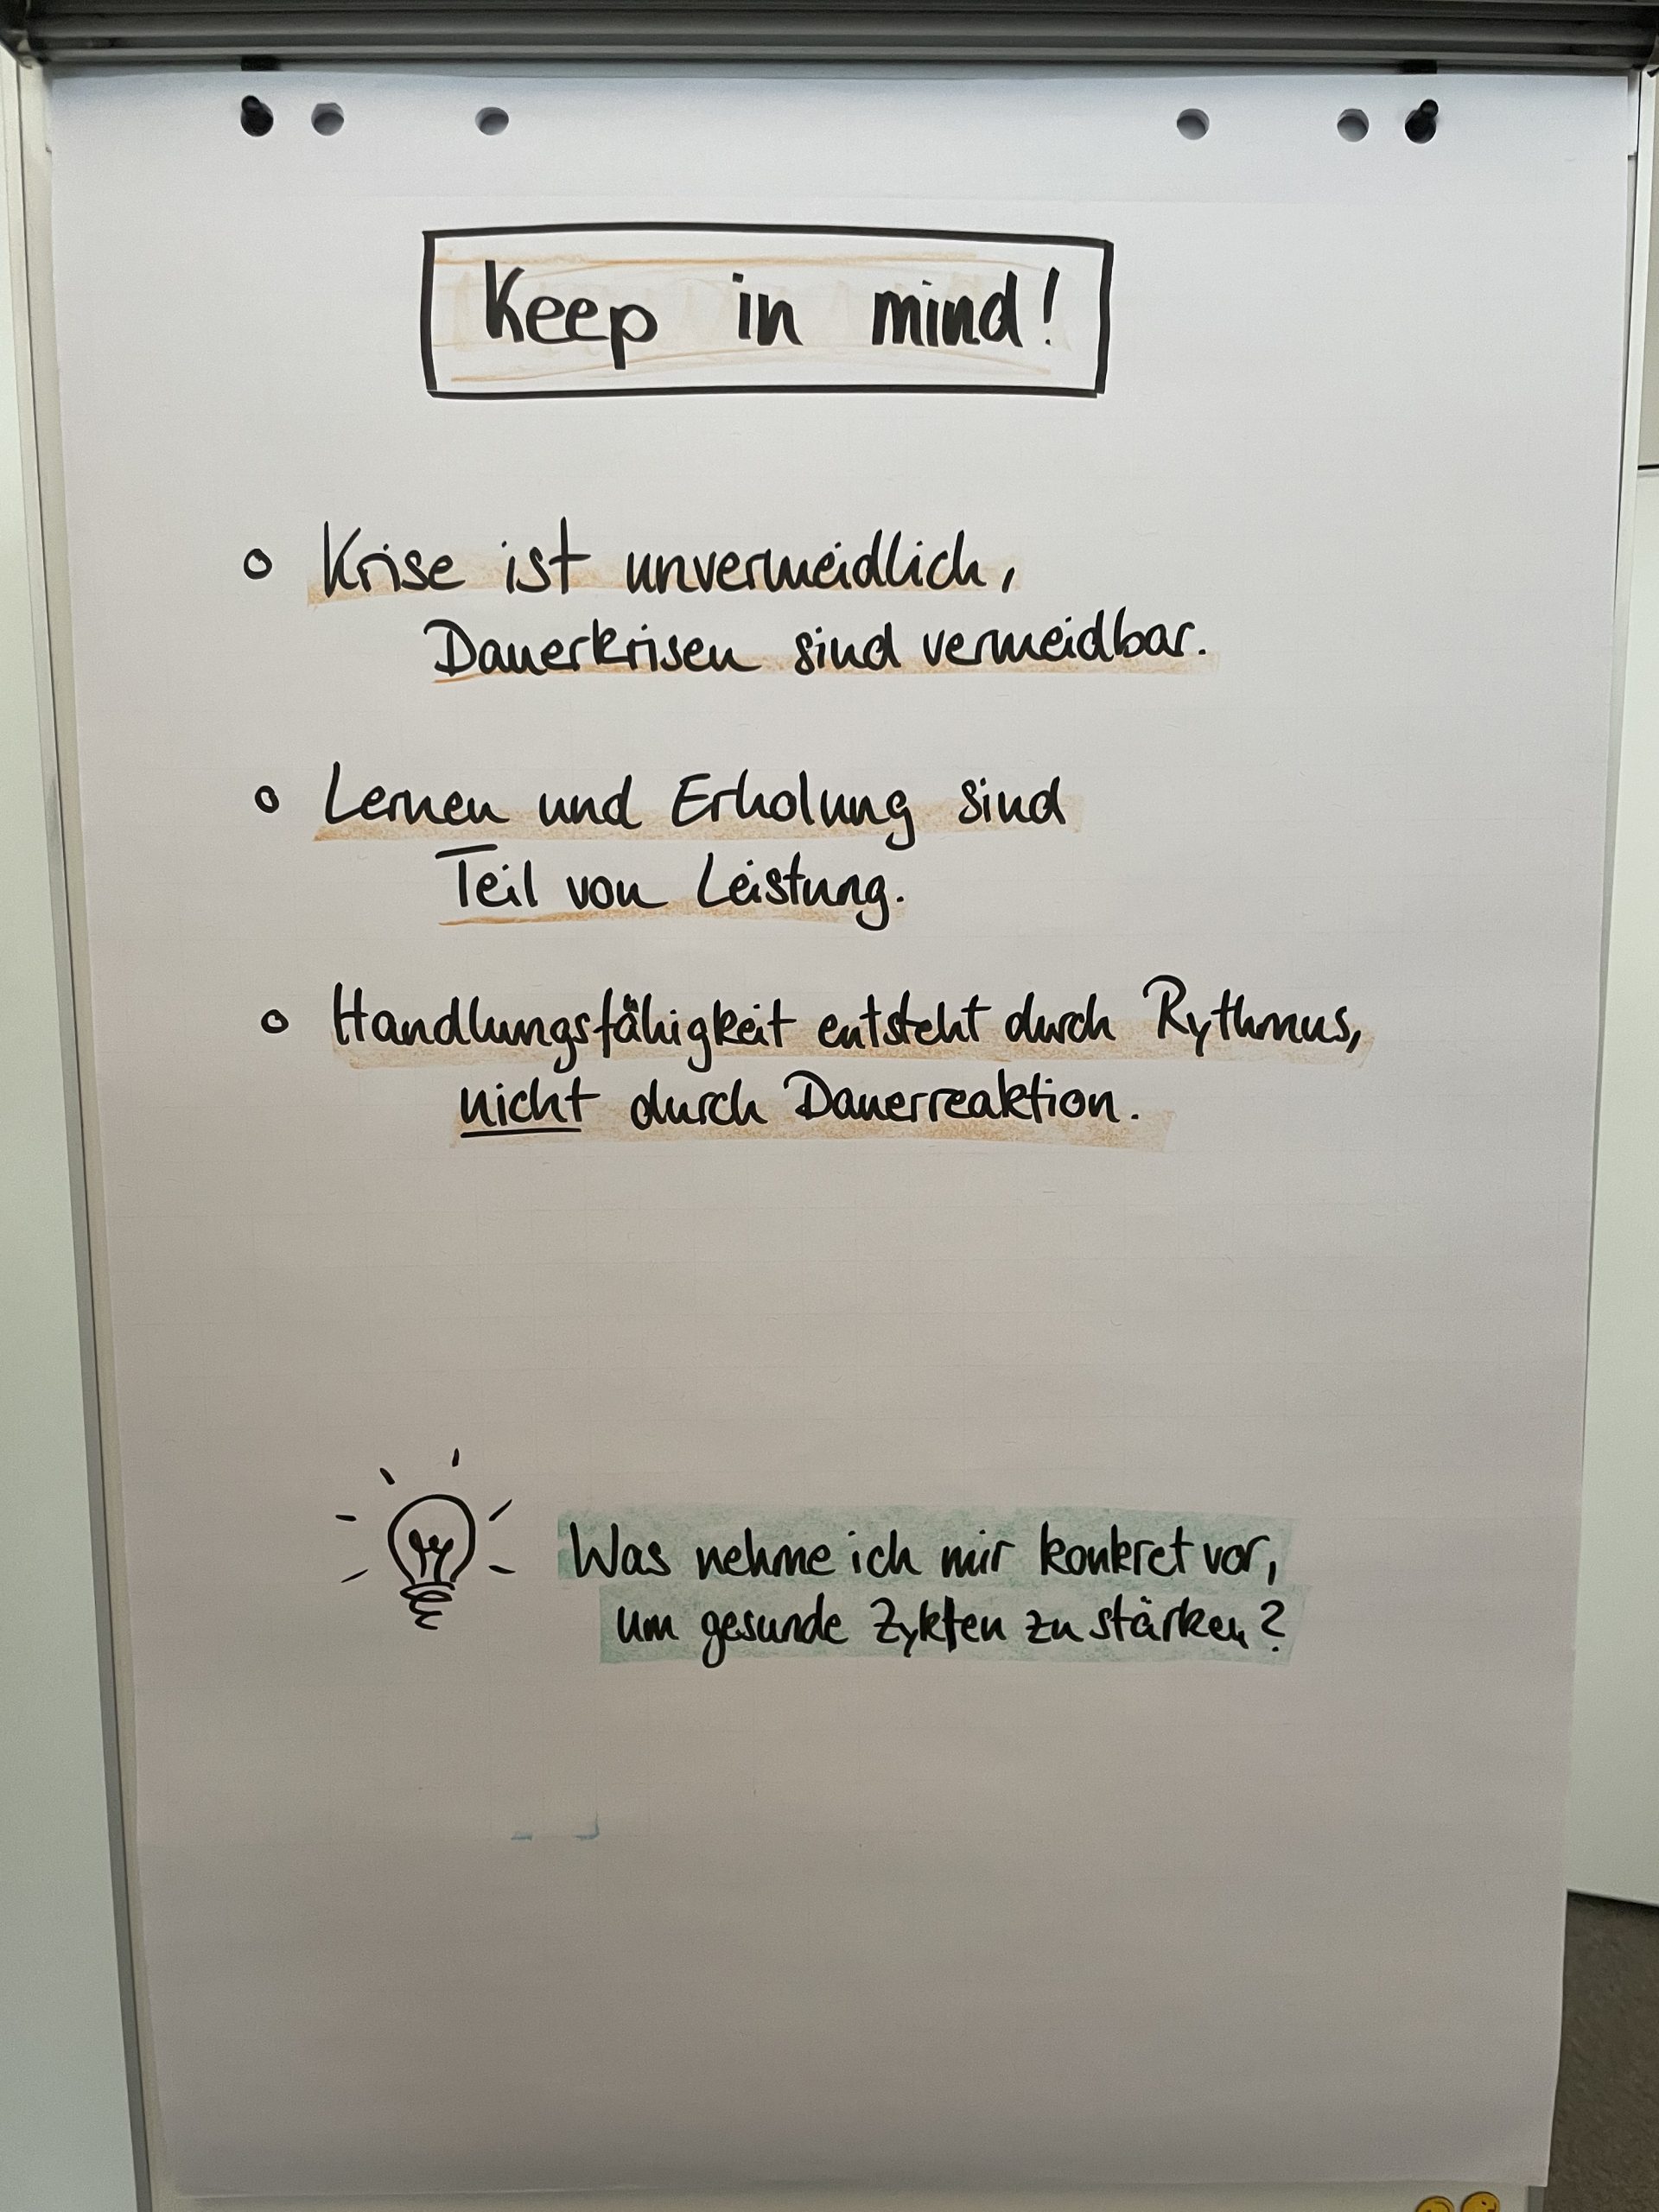 Keep in mind!
o Krise ist unvermeidlich,
Dauerkrisen sind vermeidbar.
o Lernen und Erholung sind
Teil von Leistung.
o Handlungsfähigkeit entsteht durch Rythmus,
nicht durch Dauerreaktion.
Was nehme ich mir konkret vor,
um gesunde Zyklen zu stärken?